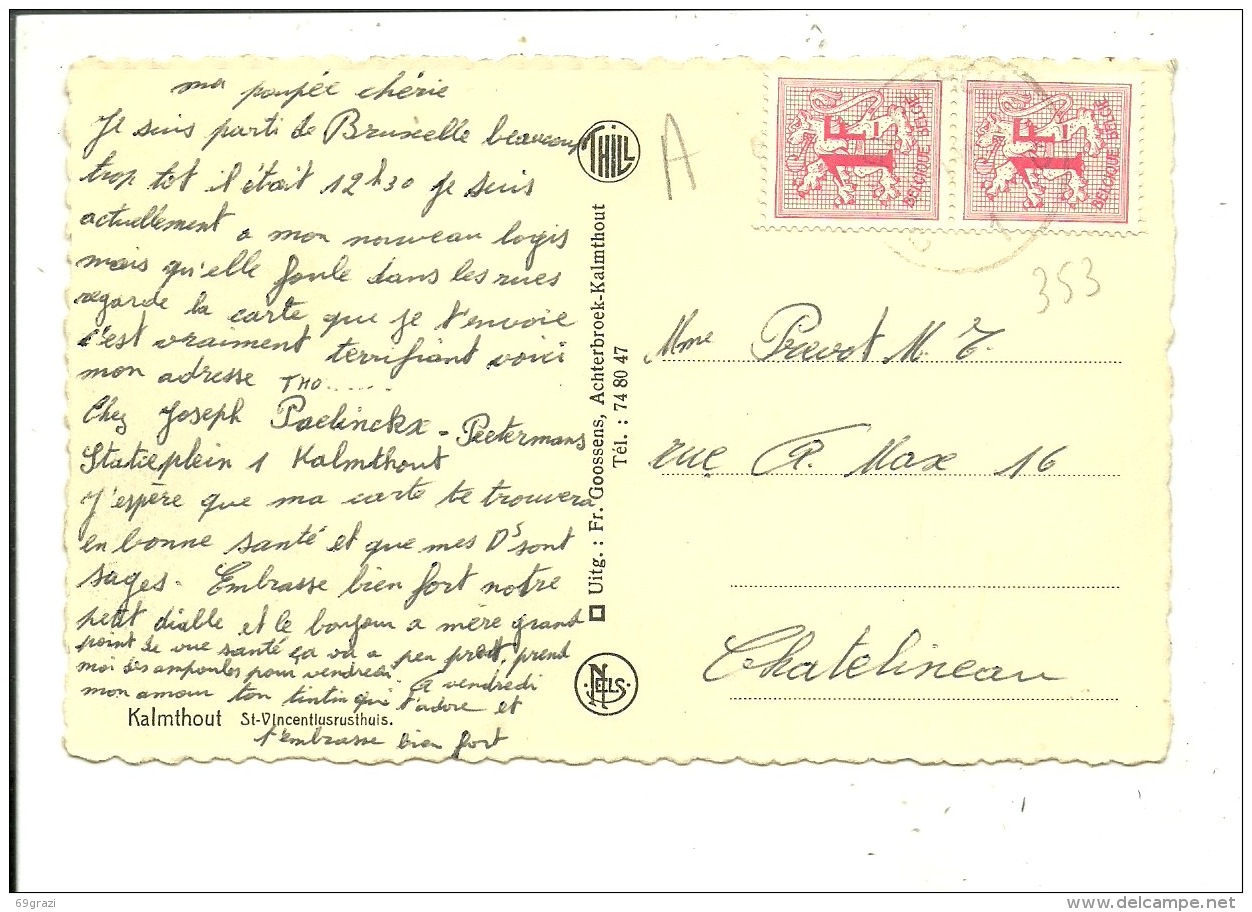 ma poupée chérie
Je suis parti de Bruxelle beaucoup
trop tot il était 12h30 je suis
actuellement a mon nouveau logis
mais qu'elle foule dans les rues
regarde la carte que je t'envoie
c'est vraiment terrifiant voici
mon adresse THO.......
Chez Joseph Paelinckx - Peetermans
Statieplein 1 Kalmthout
J'espère que ma carte te trouvera
en bonne santé et que mes Ds sont
sages. Embrasse bien fort notre
petit diable et le bonjour a mère grand
point de vue santé ça va a peu pret, prend
moi des ampoules pour vendredi. A vendredi
mon amour ton tintin qui t'adore et
t'embrasse bien fort
Kalmthout St-Vincentiusrusthuis.
THILL
Uitg. : Fr. Goossens, Achterbroek-Kalmthout
Tél. : 74 80 47
NELS
A
1F
BELGIQUE BELGIE
1F
BELGIQUE BELGIE
353
Mme Prevot M. T.
rue A. Max 16
Chatelineau
69grazi
www.delcampe.net